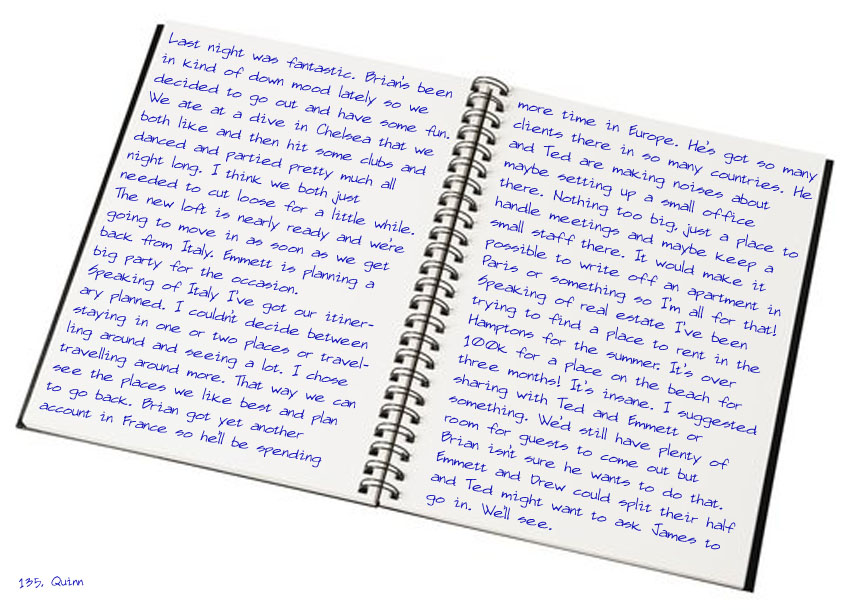 Last night was fantastic. Brian's been
in kind of down mood lately so we
decided to go out and have some fun.
We ate at a dive in Chelsea that we
both like and then hit some clubs and
danced and partied pretty much all
night long. I think we both just
needed to cut loose for a little while.
The new loft is nearly ready and we're
going to move in as soon as we get
back from Italy. Emmett is planning a
big party for the occasion.
Speaking of Italy I've got our itiner-
ary planned. I couldn't decide between
staying in one or two places or travel-
ling around and seeing a lot. I chose
travelling around more. That way we can
see the places we like best and plan
to go back. Brian got yet another
account in France so he'll be spending
more time in Europe. He's got so many
clients there in so many countries. He
and Ted are making noises about
maybe setting up a small office
there. Nothing too big, just a place to
handle meetings and maybe keep a
small staff there. It would make it
possible to write off an apartment in
Paris or something so I'm all for that!
Speaking of real estate I've been
trying to find a place to rent in the
Hamptons for the summer. It's over
100k for a place on the beach for
three months! It's insane. I suggested
sharing with Ted and Emmett or
something. We'd still have plenty of
room for guests to come out but
Brian isn't sure he wants to do that.
Emmett and Drew could split their half
and Ted might want to ask James to
go in. We'll see.
135, Quinn